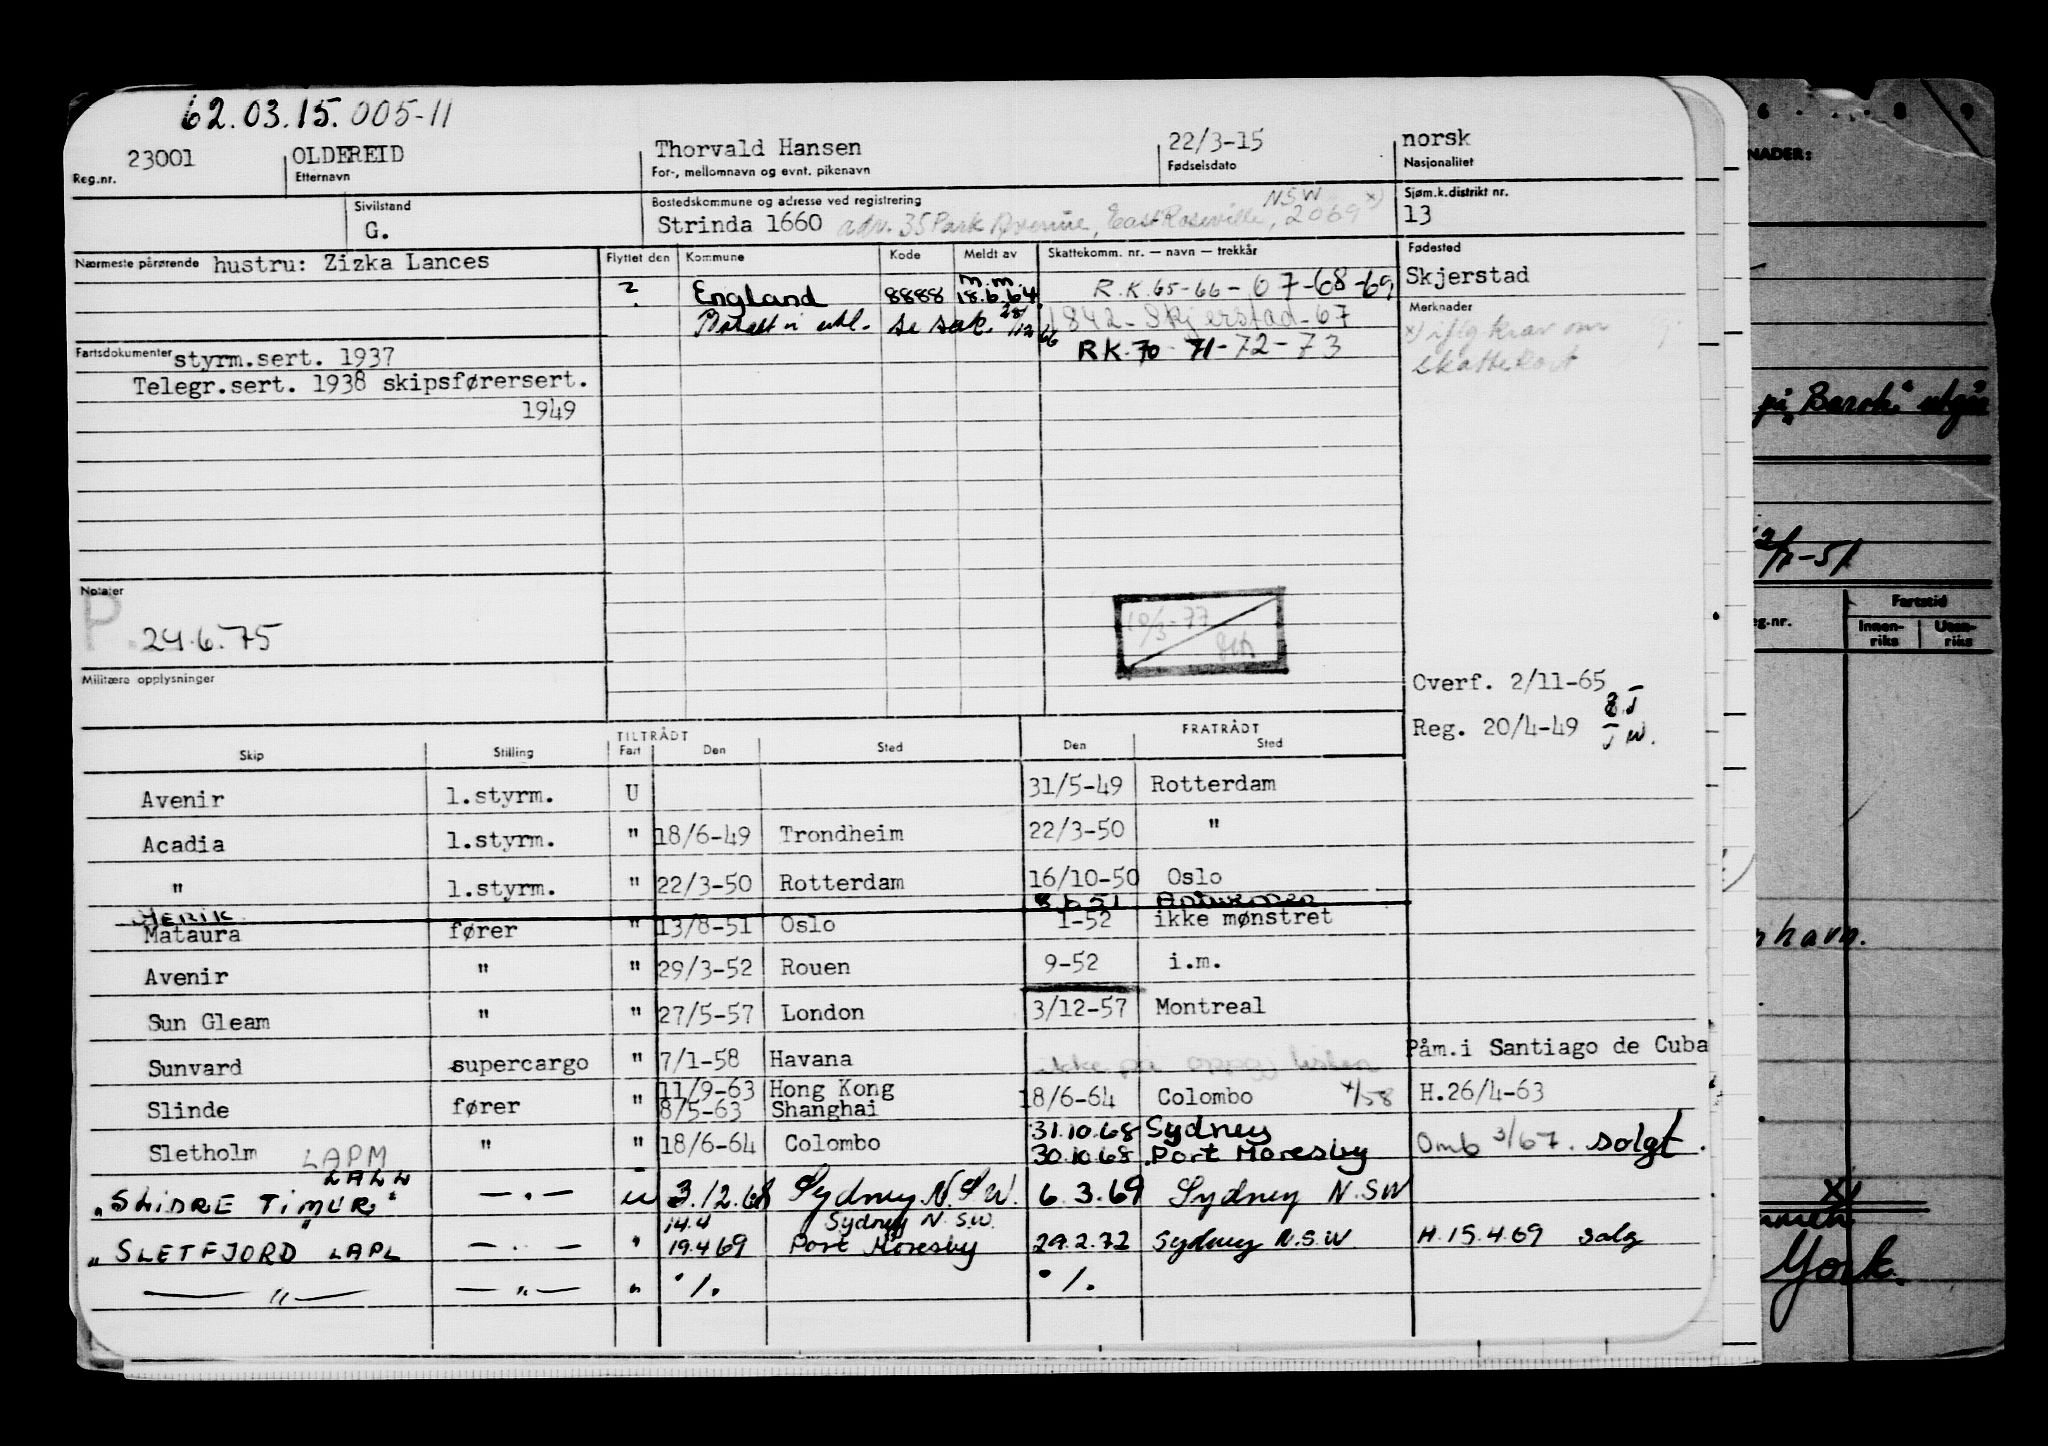 62.03.15. 005-11
23001 OLDEREID Thorvald Hansen 22/3-15 norsk
Reg.nr. Etternavn For-, mellomnavn og evnt. pikenavn Fødselsdato Nasjonalitet
Sivilstand Bostedskommune og adresse ved registrering NSW x) Sjøm.k.distrikt nr.
G. Strinda 1660 adr. 35 Park Avenue, East Roseville, 2069 13
Nærmeste pårørende hustru: Zizka Lances Flyttet den Kommune Kode Meldt av Skattekomm. nr. — navn — trekkår Fødested
Skjerstad
? England 8888 m.m. 18.6.64 R.K. 65-66-67-68-69
Merknader
se sak. 28/12 66 1842 - Skjerstad - 67
x) iflg krav om
skattekort
Fartsdokumenter styrm.sert. 1937 RK. 70 - 71 - 72 - 73
Telegr.sert. 1938 skipsførersert.
1949
Notater
P. 24.6.75
10/3-77
Militære opplysninger
Overf. 2/11-65
Reg. 20/4-49
TILTRÅDT FRATRÅDT
Skip Stilling Fart Den Sted Den Sted
Avenir 1.styrm. U 31/5-49 Rotterdam
Acadia 1.styrm. " 18/6-49 Trondheim 22/3-50 "
" 1.styrm. " 22/3-50 Rotterdam 16/10-50 Oslo
JERIK Antwerpen
Mataura fører " 13/8-51 Oslo 1-52 ikke mønstret
Avenir " " 29/3-52 Rouen 9-52 i.m.
Sun Gleam " " 27/5-57 London 3/12-57 Montreal
Sunvard supercargo " 7/1-58 Havana ikke på oppgj listen Påm.i Santiago de Cuba
Slinde fører " 11/9-63 Hong Kong 18/6-64 Colombo x/58 H.26/4-63
8/5-63 Shanghai
Sletholm LAPM " " 18/6-64 Colombo 31.10.68 Sydney
30.10.68 Port Moresby Omb 3/67. solgt.
LALW
"SLIDRE TIMUR" — " — u 3.12.68 Sydney N.S.W. 6.3.69 Sydney N.SW
14.4 Sydney N.S.W.
"SLETFJORD" LAPL — " — " 19.4 69 Port Moresby 29.2.72 Sydney N.S.W. H.15.4.69 salg
— " — — " — " ./. ./.
NADER:
på "Barok" utgår
2/1-51
eg.nr. Fartstid
Innenriks Utenriks
nhavn.
x)
York.